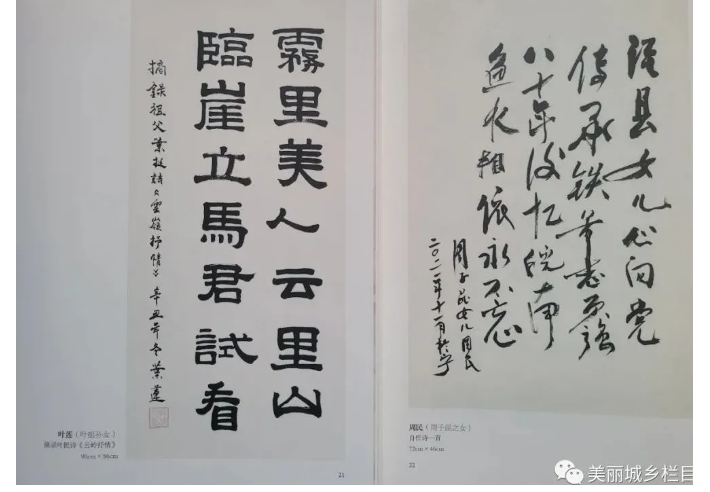 霧里美人云里山
臨崖立馬君試看
摘錄祖父葉挺詩《雲嶺抒情》辛丑年冬 葉蓮
叶莲（叶挺孙女）
摘录叶挺诗《云岭抒情》
21
泾县女儿心向党
传承铁军志更强
八十年后忆皖南
鱼水相依永不忘
周子昆女儿周民
二〇二一年十一月於宁
周民（周子昆之女）
自作诗一首
72cm×46cm
22
美丽城乡栏目